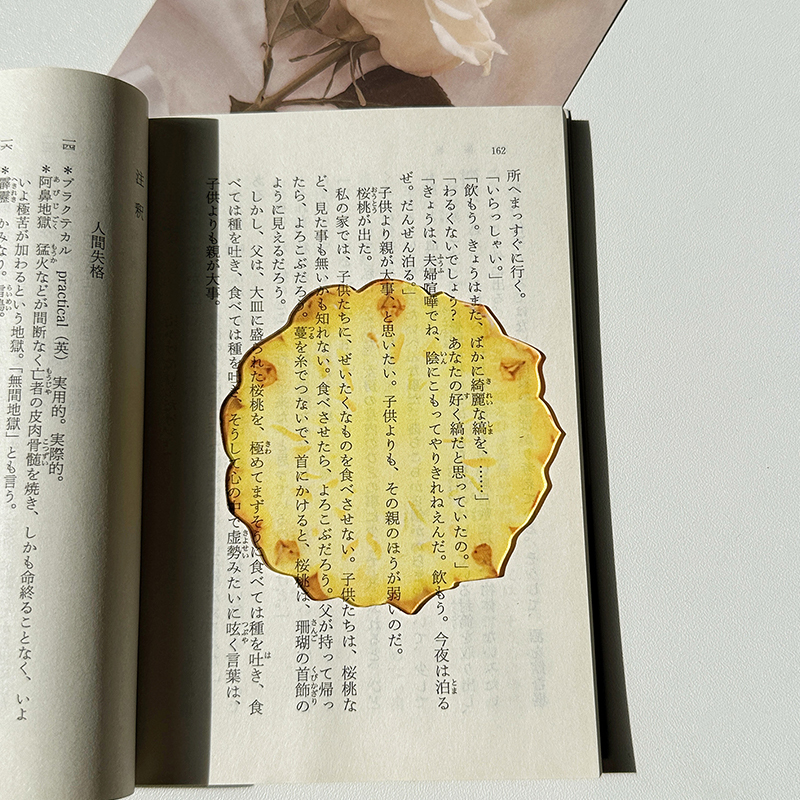 162
所へまっすぐに行く。
「いらっしゃい。」
「飲もう。きょうはまた、ばかに綺麗な縞を、……」
「わるくないでしょう? あなたの好く縞だと思っていたの。」
「きょうは、夫婦喧嘩でね、陰にこもってやりきれねえんだ。飲もう。今夜は泊る
ぜ。だんぜん泊る。」
子供より親が大事、と思いたい。子供よりも、その親のほうが弱いのだ。
桜桃が出た。
私の家では、子供たちに、ぜいたくなものを食べさせない。子供たちは、桜桃な
ど、見た事も無いかも知れない。食べさせたら、よろこぶだろう。父が持って帰っ
たら、よろこぶだろう。蔓を糸でつないで、首にかけると、桜桃は、珊瑚の首飾の
ように見えるだろう。
しかし、父は、大皿に盛られた桜桃を、極めてまずそうに食べては種を吐き、食
べては種を吐き、食べては種を吐き、そうして心の中で虚勢みたいに呟く言葉は、
子供よりも親が大事。
注釈
人間失格
一四 *プラクテカル practical(英) 実用的。実際的。
*阿鼻地獄 猛火などが間断なく亡者の皮肉骨髄を焼き、しかも命終ることなく、いよ
いよ極苦が加わるという地獄。「無間地獄」とも言う。
一六 *霹靂 かみなり。雷鳴。